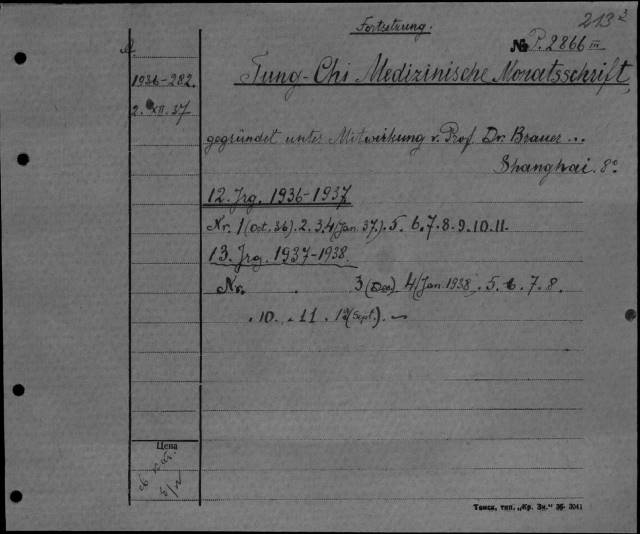 213³
Fortsetzung.
№ P. 2866 III
Tung-Chi Medizinische Monatsschrift,
1936-282.
2. XII. 37
gegründet unter Mitwirkung v. Prof. Dr. Brauer ...
Shanghai. 8°
12. Jrg. 1936-1937
Nr. 1 (Oct. 36). 2. 3. 4 (Jan. 37). 5. 6. 7. 8. 9. 10. 11.
13. Jrg. 1937-1938.
Nr. . 3 (Dec). 4 (Jan 1938). 5. 6. 7. 8.
. 10. . 11. 12 (Sept.).
Цена
б/ц
Томск, тип. „Кр. Зн.“ 36 3041